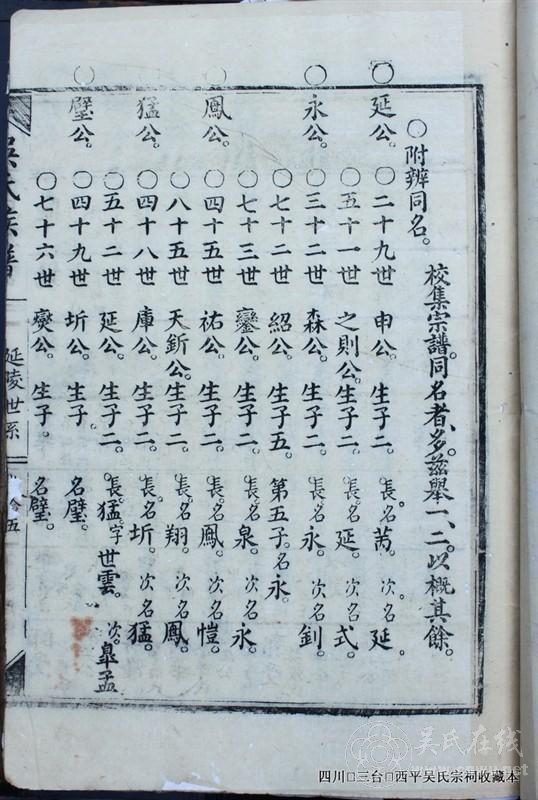 ○附辨同名。
校集宗譜。同名者多。茲舉一、二。以概其餘。
○延公。○二十九世 申公。生子二。長。名萬。次。名延。
○五十一世 之則公。生子二。長名延。次名式。
○永公。○三十二世 森公。生子二。長名永。次名釗。
○七十二世 紹公。生子五。第五子。名永。
○七十三世 鑾公。生子二。長名泉。次名永。
○鳳公。○四十五世 祐公。生子二。長名鳳。次名愷。
○八十五世 天釿公。生子二。長名翔。次名鳳。
猛公。○四十八世 庫公。生子二。長名圻。次名猛。
○五十二世 延公。生子二。長猛。字世雲。次。皐孟
○璧公。○四十九世 圻公。生子。名璧。
○七十六世 奭公。生子。名璧。
吳氏族譜 延陵世系 五
吴氏在线
四川□三台□西平吴氏宗祠收藏本